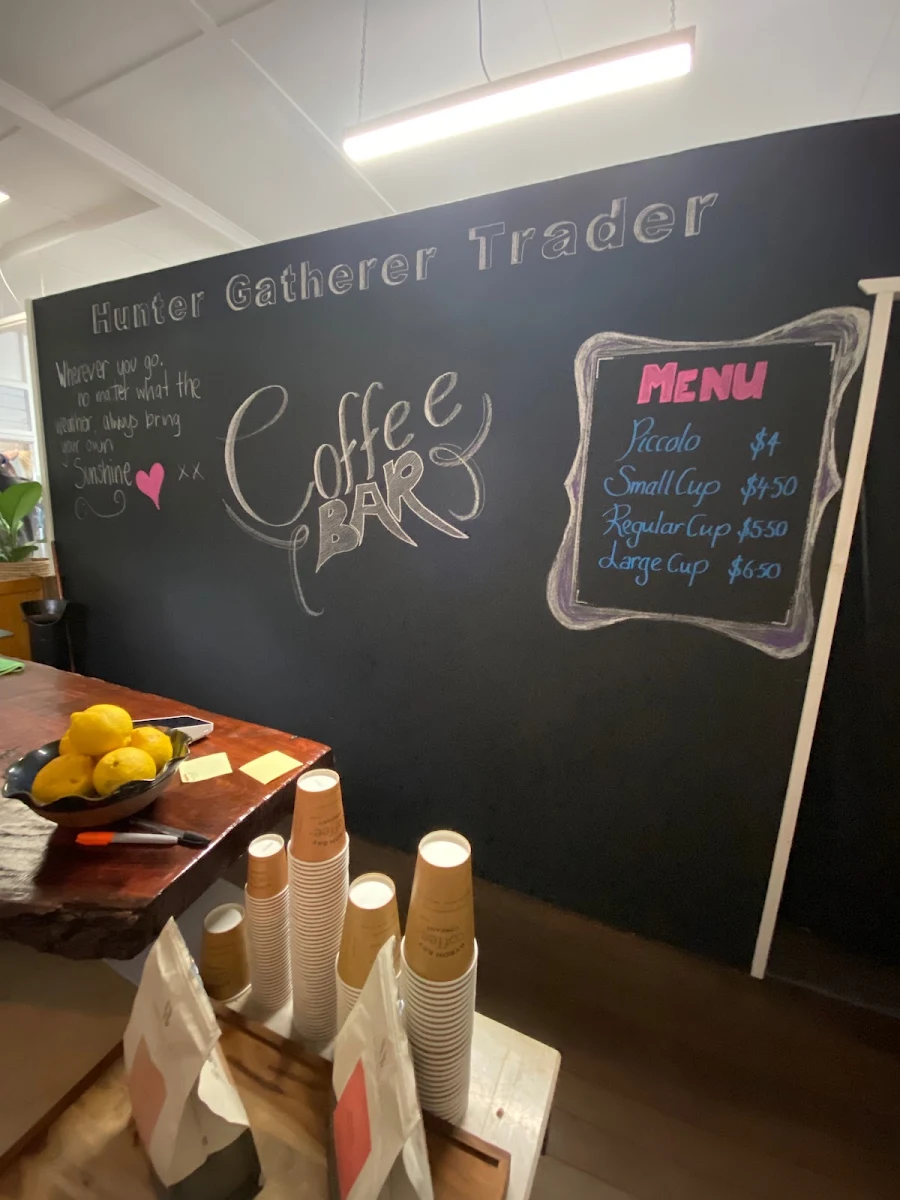 Hunter Gatherer Trader
Wherever you go,
no matter what the
weather, always bring
your own
Sunshine xx
Coffee
BAR
MENU
Piccolo $4
Small Cup $4.50
Regular Cup $5.50
Large Cup $6.50
coffee
BYRON BAY
coffee